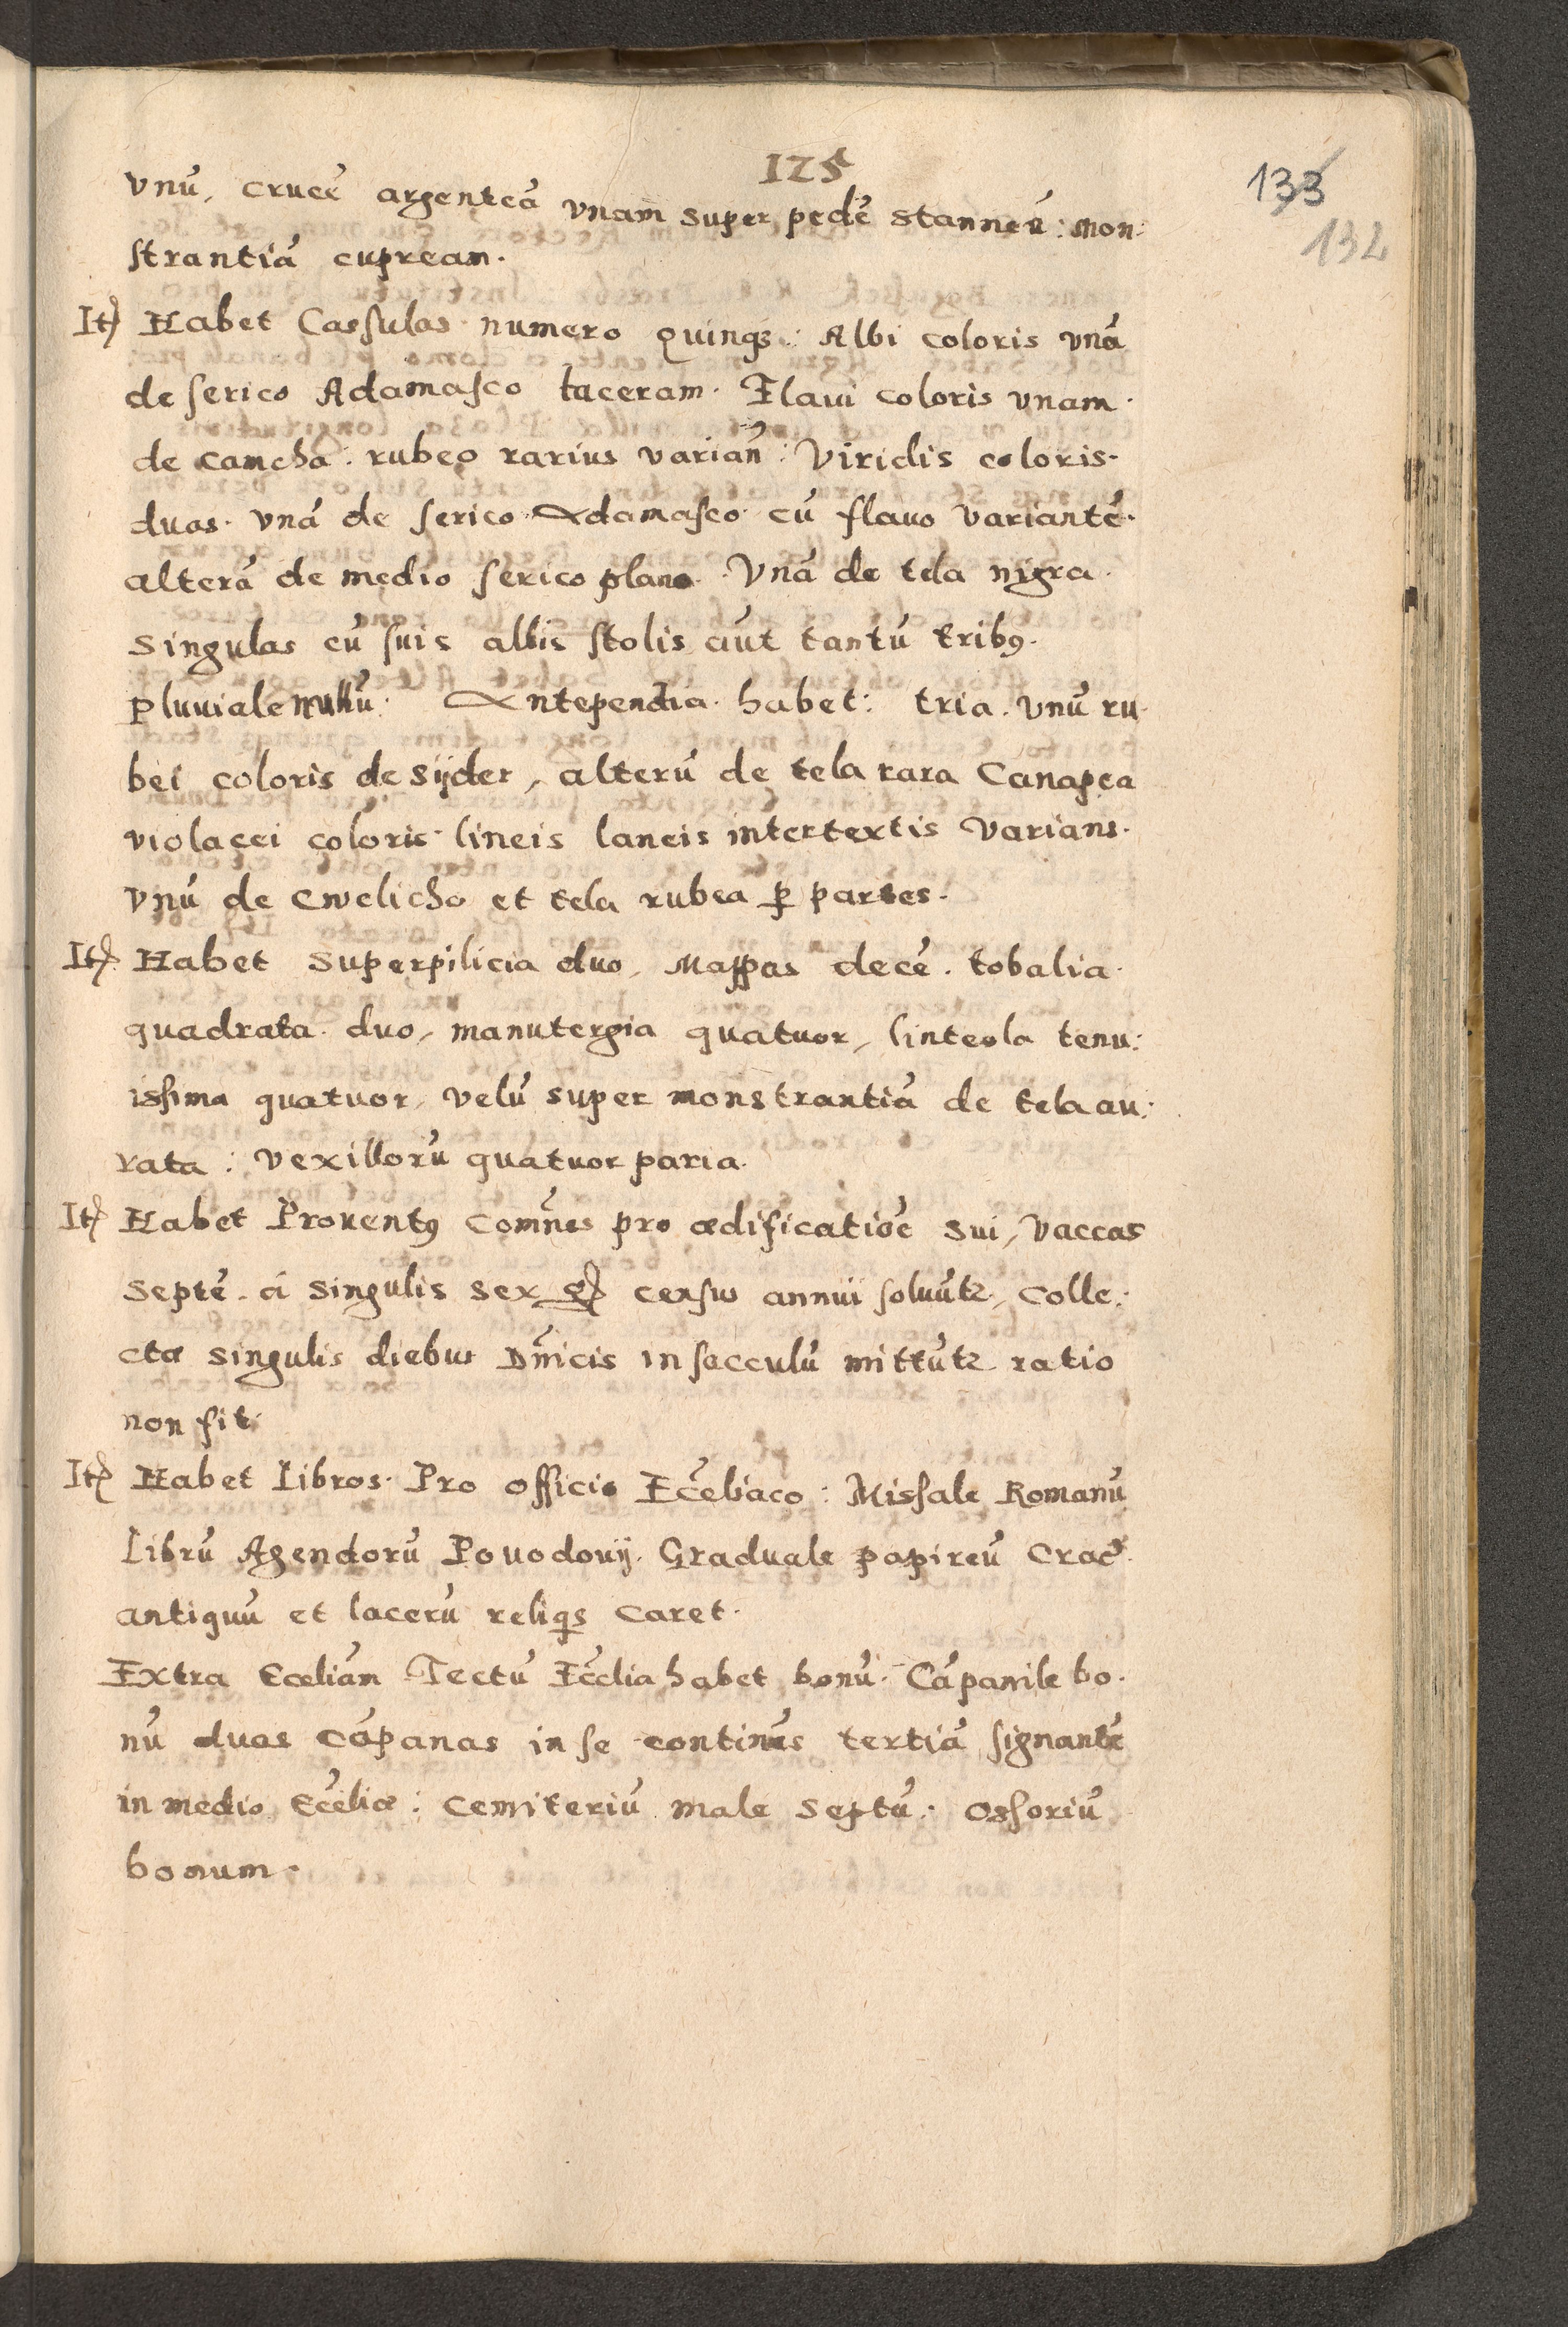 125
133
132
vnū, crucē argenteā vnam super pedē stanneū: mon:
strantiā cupream.
It) Habet Cassulas numero Quinqʒ: Albi coloris vnā
de serico Adamasco laceram. Flaui coloris vnam
de camcha: rubeo rarius varian̄: Viridis coloris
duas. vnā de serico Adamasco cū flauo variantē.
alterā de medio serico plano. Vnā de tela nigra.
singulas cū suis albis stolis aūt tantū tribꝰ.
Pluuiale nullū. Antependia habet: tria. vnū ru
bei coloris de Sijder, alterū de tela rara Canapea
violacei coloris lineis laneis intertextis varians.
vnū de cwelicho et tela rubea ꝑ partes.
It) Habet superpilicia duo, Mappas decē. tobalia
quadrata duo, manutergia quatuor, linteola tenu:
issima quatuor, velū super monstrantiā de tela au:
rata: vexillorū quatuor paria.
It) Habet Prouentꝰ com̄nes pro ædificatiōe sui, vaccas
septē. á singulis sex g) census annui soluūtr, Colle:
ctæ singulis diebus Dn̄icis in sacculū mittūtr ratio
non fit.
It) Habet Libros Pro officio Ecc̄eliaco: Missale Romanū
Librū Agendorū Pouodouij. Graduale papireū Crac̄
antiquū et lacerū reliqis caret.
Extra Eccliām Tectū Ecc̄lia habet bonū. Cāpanile bo
nū duas cāpanas in se continēs tertiā signantē
in medio Ecc̄eliæ: Cemiteriū male septū: ossoriū
bonum.